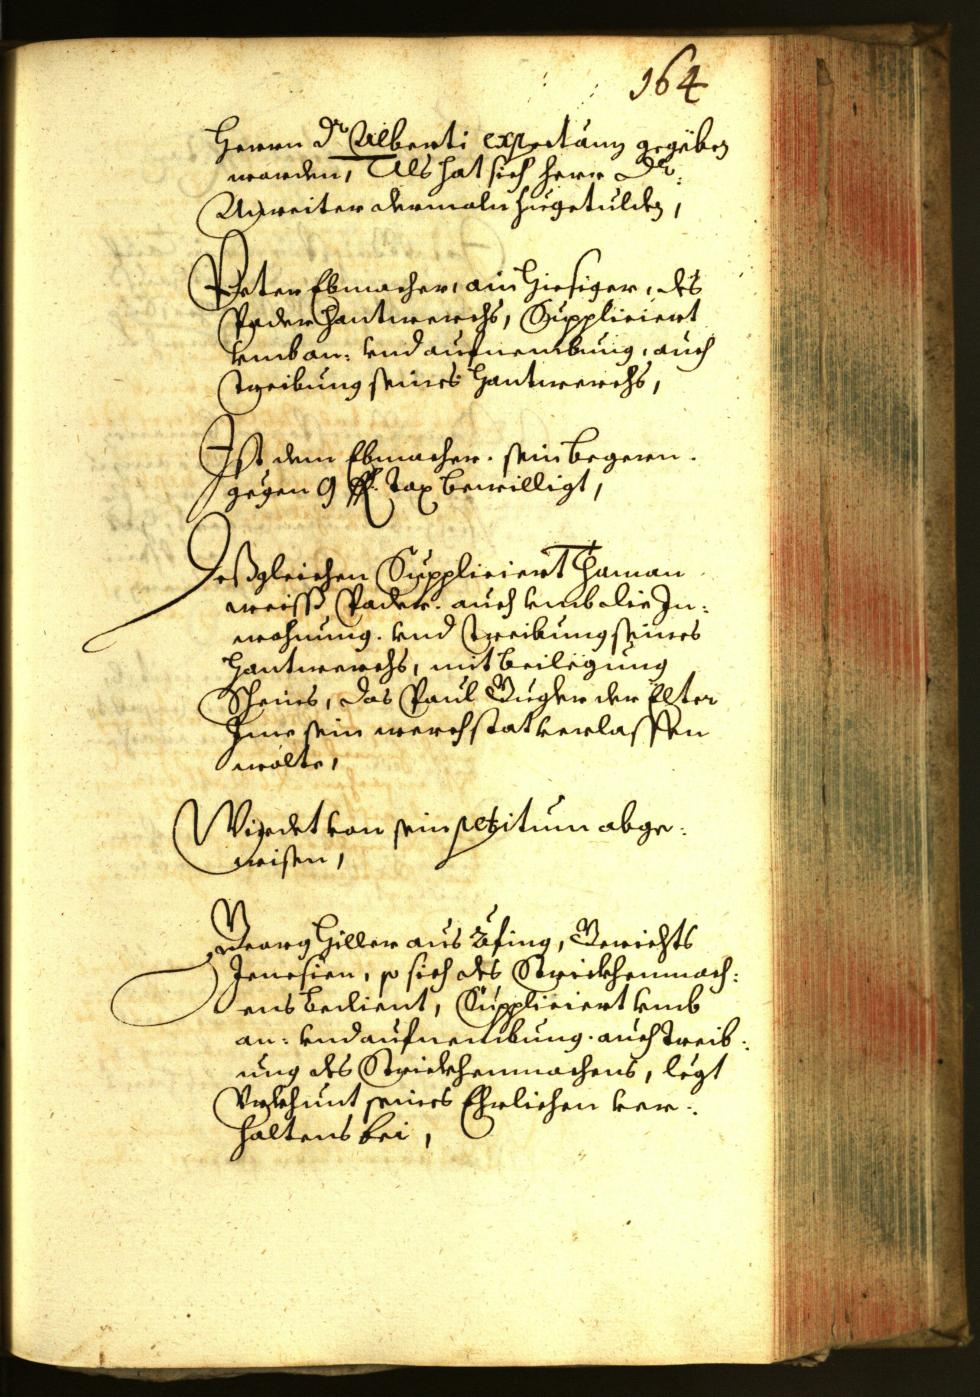 164
Herrn Dr Alberti expectanz gegeben
worden, Als hat sich herr Dr:
Unreiter dermaln zugetulden,
Peter Ebmacher, ain hiesiger, des
Pader Hantwerchs, Suppliciert
vmb an: vnd aufnembung, auch
treibung seines Hantwerchs,
Ist dem Ebmacher. sein begern.
gegen 9 fl. tax bewilligt,
Deßgleichen Suppliciert Haman
weiss Pader. auch vmb die In:
wohnung. vnd treibung seines
Hantwerchs, mit beilegung
Scheins, das Paul Gugler der Elter
Ime sein werchstat verlassen
wölte,
Wirdet von sein petitum abge:
wisen,
Georg Hiller aus Äfing, Gerichts
Jenesien, so sich des Strickhenmach:
ens bedient, Suppliciert vmb
an: vnd aufnembung. auch treib:
ung des Strickhenmachens, legt
Vrkhunt seines Ehrlichen ver:
haltens bei,